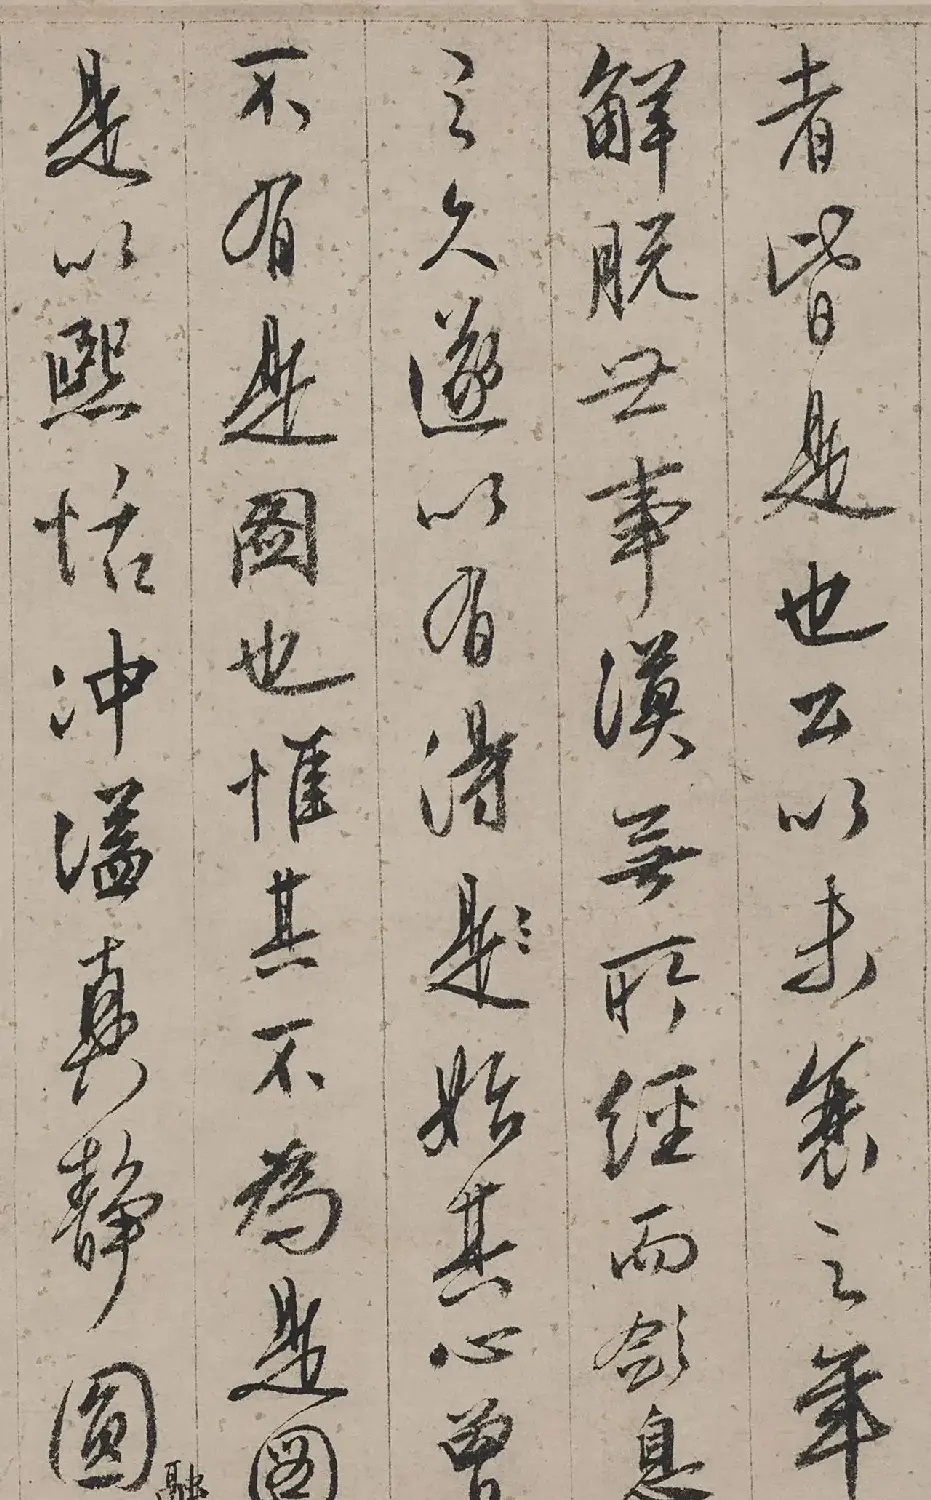 者皆是也公以未衰之年
解脱世事漠無所經而欲息
之久遂以有得是〻始其心曾
不有是圖也惟其不為是圖
是以熙恬沖溢真靜圓
融